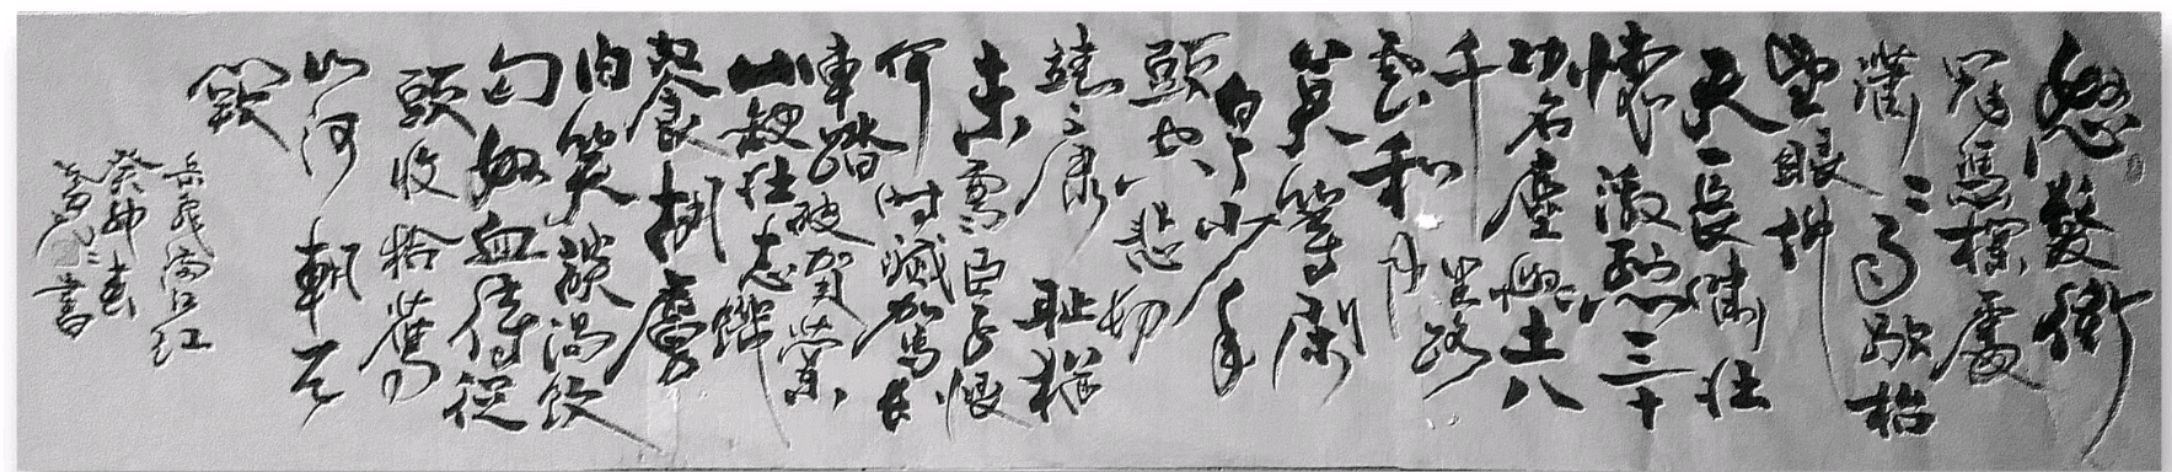 怒髮衝
冠憑欄處
瀟瀟雨歇抬
望眼仰
天長嘯壯
懷激烈三十
功名塵與土八
千里路
雲和月
莫等閒
白了少年
頭空悲切
靖康耻猶
未雪臣子恨
何時滅駕長
車踏破賀蘭
山缺壯志饑
餐胡虜
肉笑談渴飲
匈奴血待從
頭收拾舊
山河朝天
闕
岳飛滿江紅
癸卯春
書